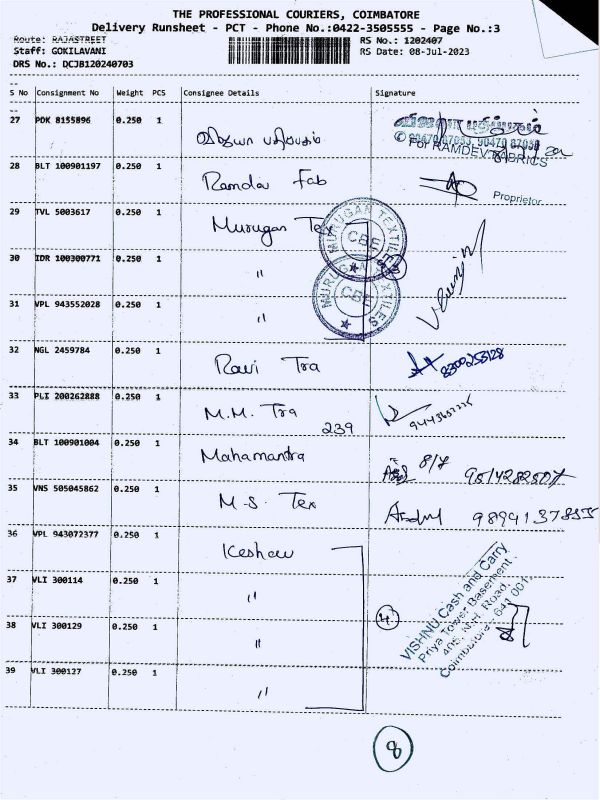 THE PROFESSIONAL COURIERS, COIMBATORE
Delivery Runsheet - PCT - Phone No.:0422-3505555 - Page No.:3
Route: RAJASTREET
RS No.: 1202407
Staff: GOKILAVANI
RS Date: 08-Jul-2023
DRS No.: DCJB120240703
S No Consignment No Weight PCS Consignee Details Signature
27 PDK 8155896 0.250 1
For RAMDEV FABRICS
28 BLT 100901197 0.250 1 Ramdev Fab
Proprietor
29 TVL 5003617 0.250 1 Murugan Tex
MURUGAN TEXTILES
CBE
30 IDR 100300771 0.250 1 "
MURUGAN TEXTILES
CBE
31 VPL 943552028 0.250 1 "
32 NGL 2459784 0.250 1 Ravi Tra 8300253128
33 PLI 200262888 0.250 1 M.M. Tra 239
34 BLT 100901004 0.250 1 Mahamantra 8/7
35 VNS 505045862 0.250 1 M.S. Tex
36 VPL 943072377 0.250 1 Keshav
37 VLI 300114 0.250 1 "
38 VLI 300129 0.250 1 " 4
39 VLI 300127 0.250 1 "
VISHNU Cash and Carry
Priya Tower Basement
Coimbatore - 641 001.
8